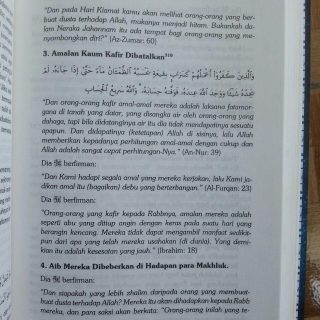 "Dan pada Hari Kiamat kamu akan melihat orang-orang yang ber-
buat dusta terhadap Allah, mukanya menjadi hitam. Bukankah da-
lam Neraka Jahannam itu ada tempat bagi orang-orang yang me-
nyombongkan diri?" (Az-Zumar: 60)
3. Amalan Kaum Kafir Dibatalkan
وَالَّذِينَ كَفَرُوا أَعْمَالُهُمْ كَسَرَابٍ بِقِيعَةٍ يَحْسَبُهُ الظَّمْآنُ مَاءً حَتَّى إِذَا جَاءَهُ لَمْ
يَجِدْهُ شَيْئًا وَوَجَدَ اللَّهَ عِنْدَهُ فَوَفَّاهُ حِسَابَهُ وَاللَّهُ سَرِيعُ الْحِسَابِ
"Dan orang-orang kafir amal-amal mereka adalah laksana fatamor-
gana di tanah yang datar, yang disangka air oleh orang-orang yang
dahaga, tapi bila didatanginya air itu dia tidak mendapatinya sesuatu
apapun. Dan didapatinya (ketetapan) Allah di sisinya, lalu Allah
memberikan kepadanya perhitungan amal-amal dengan cukup dan
Allah adalah sangat cepat perhitungan-Nya." (An-Nur: 39)
Dia ﷻ berfirman:
"Dan Kami hadapi segala amal yang mereka kerjakan, lalu Kami ja-
dikan amal itu (bagaikan) debu yang berterbangan." (Al-Furqan: 23)
Dia ﷻ berfirman:
"Orang-orang yang kafir kepada Rabbnya, amalan mereka adalah
seperti abu yang ditiup angin dengan keras pada suatu hari yang
berangin kencang. Mereka tidak dapat mengambil manfaat sedikit-
pun dari apa yang telah mereka usahakan (di dunia). Yang demi-
kian itu adalah kesesatan yang jauh." (Ibrahim: 18)
4. Aib Mereka Dibeberkan di Hadapan para Makhluk.
Dia ﷻ berfirman:
"Dan siapakah yang lebih zhalim daripada orang yang membuat-
buat dusta terhadap Allah? Mereka itu akan dihadapkan kepada Rabb
mereka, dan para saksi akan berkata: "Orang-orang inilah yang te-